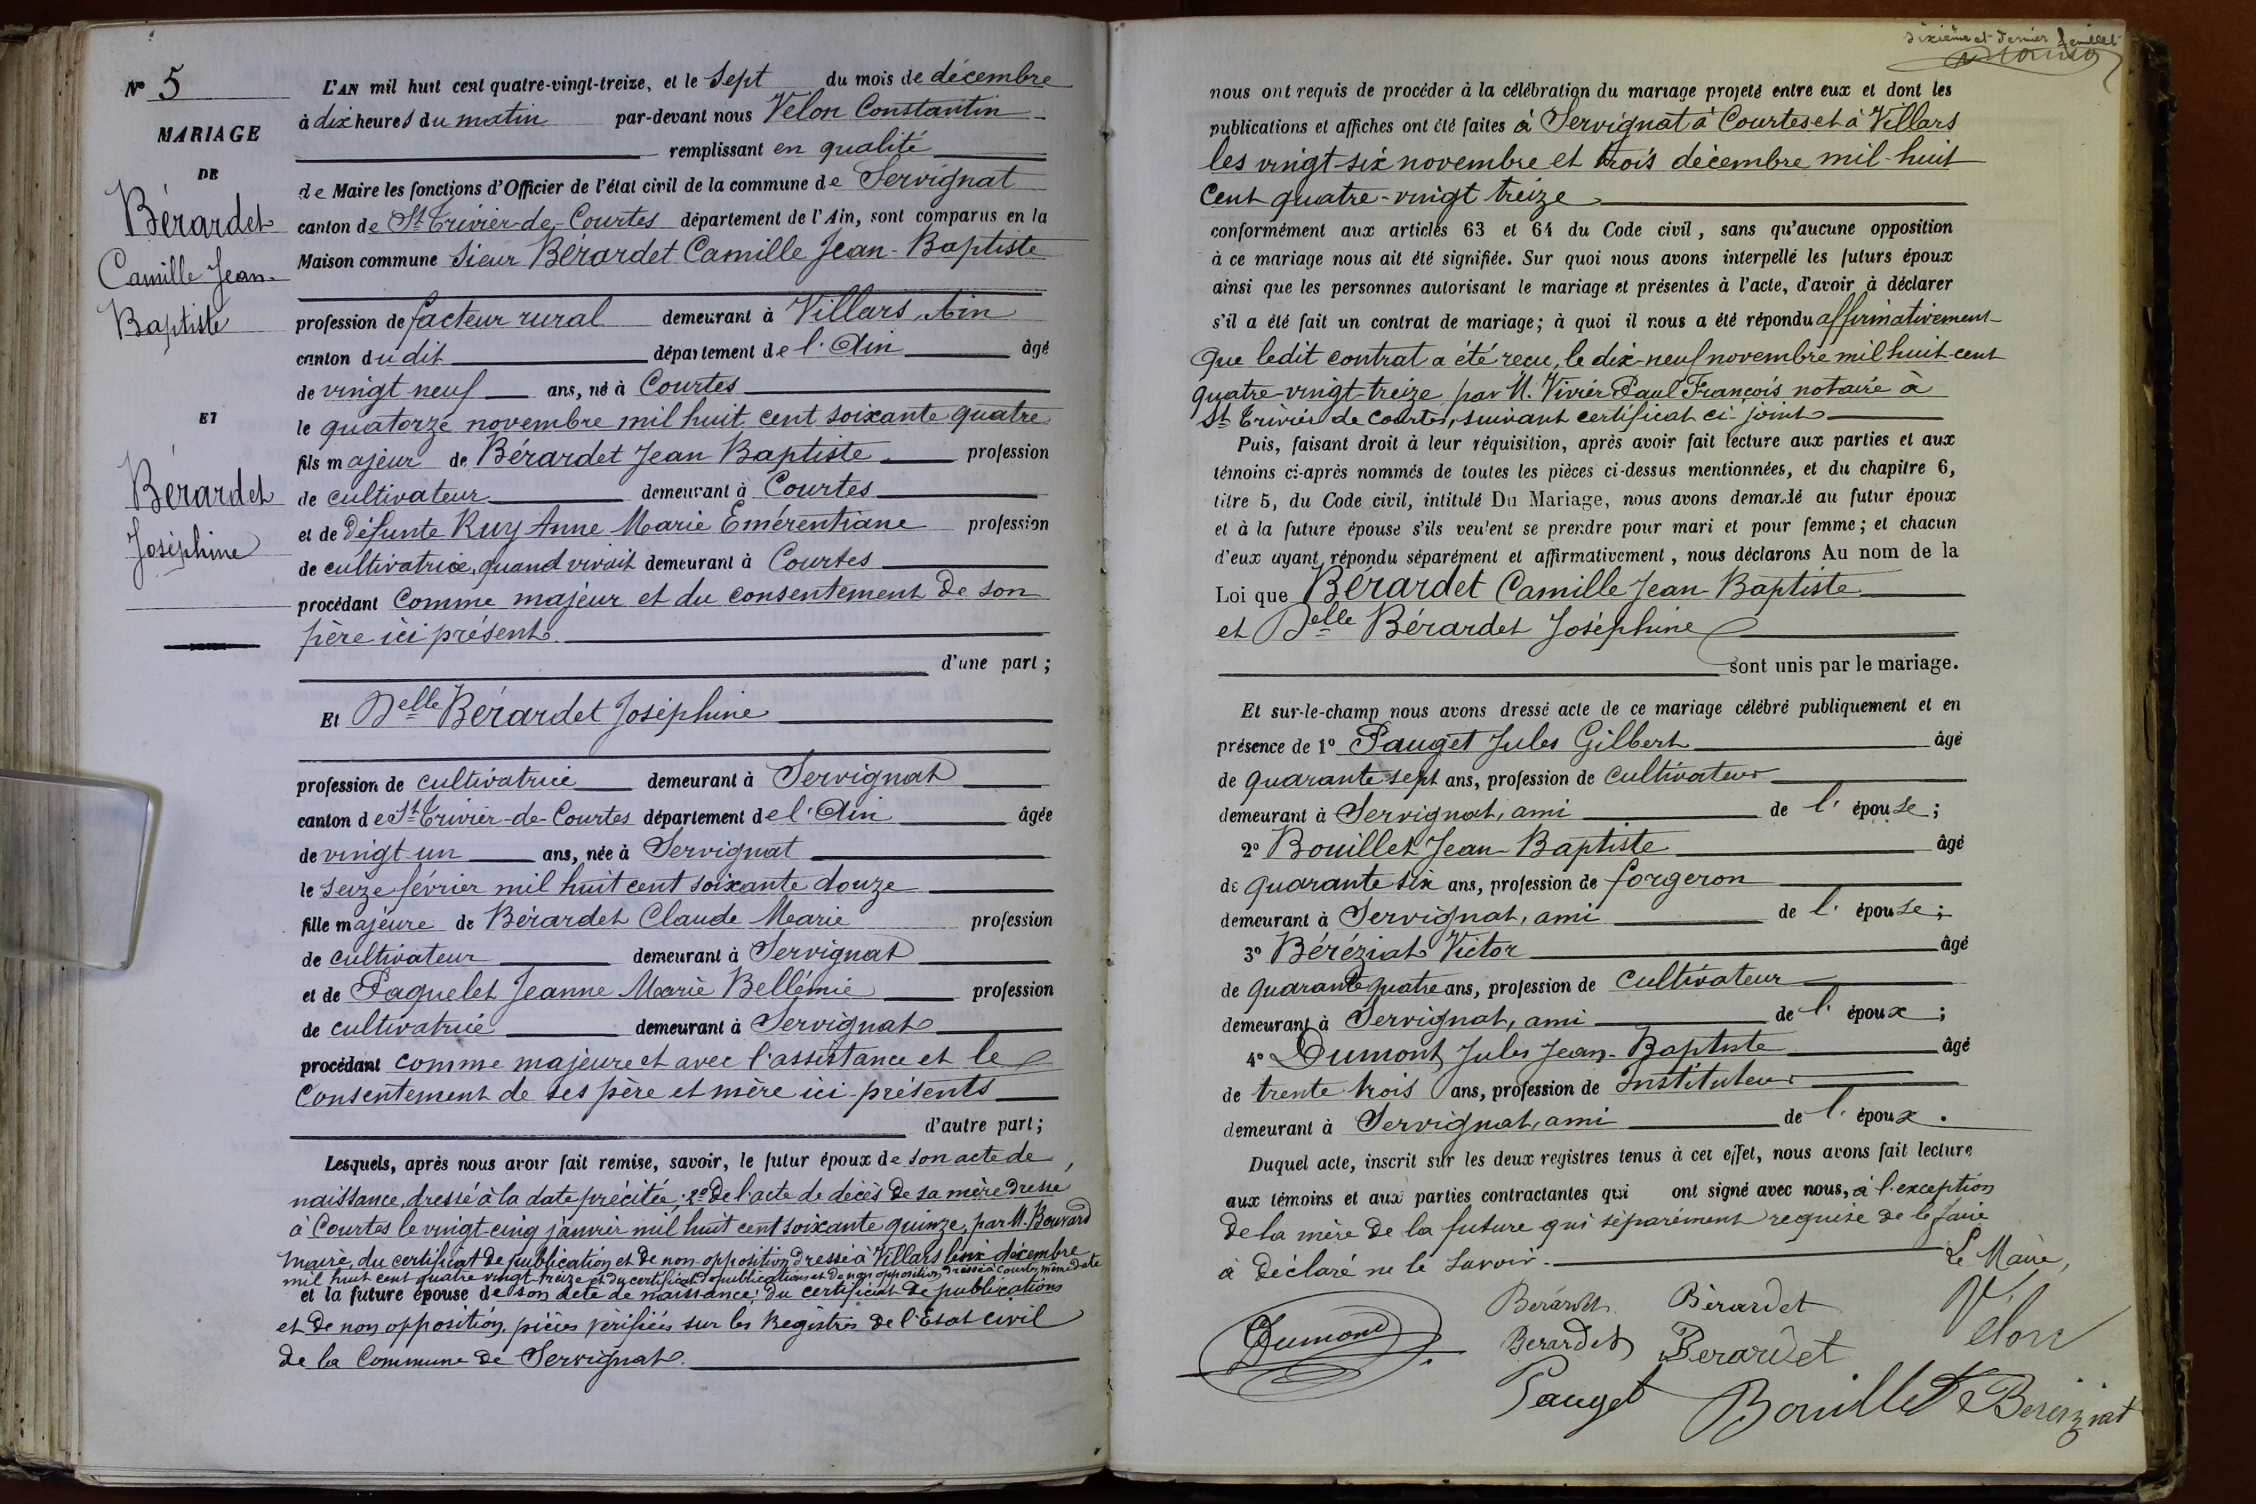 Nº 5
MARIAGE
DE
Bérardet
Camille Jean-
Baptiste
ET
Bérardet
Joséphine
L'AN mil huit cent quatre-vingt-treize, et le Sept du mois de décembre
à dix heures du matin par-devant nous Velon Constantin
remplissant en qualité
de Maire les fonctions d'Officier de l'état civil de la commune de Servignat
canton de St Trivier-de-Courtes département de l'Ain, sont comparus en la
Maison commune Sieur Bérardet Camille Jean-Baptiste
profession de facteur rural demeurant à Villars, Ain
canton dudit département de l'Ain âgé
de vingt neuf ans, né à Courtes
le quatorze novembre mil huit cent soixante quatre
fils majeur de Bérardet Jean Baptiste profession
de cultivateur demeurant à Courtes
et de défunte Ruy Anne Marie Emérentiane profession
de cultivatrice, quand vivait demeurant à Courtes
procédant comme majeur et du consentement de son
père ici présent.
d'une part ;
Et Delle Bérardet Joséphine
profession de cultivatrice demeurant à Servignat
canton de St Trivier-de-Courtes département de l'Ain âgée
de vingt-un ans, née à Servignat
le seize février mil huit cent soixante douze
fille majeure de Bérardet Claude Marie profession
de cultivateur demeurant à Servignat
et de Paquelet Jeanne Marie Bellémie profession
de cultivatrice demeurant à Servignat
procédant comme majeure et avec l'assistance et le
consentement de ses père et mère ici présents
d'autre part ;
Lesquels, après nous avoir fait remise, savoir, le futur époux de son acte de
naissance, dressé à la date précitée ; 2º de l'acte de décès de sa mère dressé
à Courtes le vingt-cinq janvier mil huit cent soixante quinze, par M. Bouvard
maire, du certificat de publication et de non opposition dressé à Villars le six décembre
mil huit cent quatre vingt treize et du certificat de publications et de non opposition dressé à Courtes, même date
et la future épouse de son acte de naissance ; du certificat de publications
et de non opposition, pièces vérifiées sur les Registres de l'Etat civil
de la Commune de Servignat.
dixième et dernier feuillet
nous ont requis de procéder à la célébration du mariage projeté entre eux et dont les
publications et affiches ont été faites à Servignat à Courtes et à Villars
les vingt-six novembre et trois décembre mil-huit
cent quatre-vingt treize
conformément aux articles 63 et 64 du Code civil, sans qu'aucune opposition
à ce mariage nous ait été signifiée. Sur quoi nous avons interpellé les futurs époux
ainsi que les personnes autorisant le mariage et présentes à l'acte, d'avoir à déclarer
s'il a été fait un contrat de mariage ; à quoi il nous a été répondu affirmativement
que ledit contrat a été reçu, le dix-neuf novembre mil huit cent
quatre-vingt-treize par M. Vivier Paul François notaire à
St Trivier de Courtes, suivant certificat ci-joint
Puis, faisant droit à leur réquisition, après avoir fait lecture aux parties et aux
témoins ci-après nommés de toutes les pièces ci-dessus mentionnées, et du chapitre 6,
titre 5, du Code civil, intitulé Du Mariage, nous avons demandé au futur époux
et à la future épouse s'ils veulent se prendre pour mari et pour femme ; et chacun
d'eux ayant répondu séparément et affirmativement, nous déclarons Au nom de la
Loi que Bérardet Camille Jean-Baptiste
et Delle Bérardet Joséphine
sont unis par le mariage.
Et sur-le-champ nous avons dressé acte de ce mariage célébré publiquement et en
présence de 1º Pauget Jules Gilbert âgé
de quarante sept ans, profession de cultivateur
demeurant à Servignat, ami de l' épouse ;
2º Bouillet Jean-Baptiste âgé
de quarante six ans, profession de forgeron
demeurant à Servignat, ami de l' épouse ;
3º Béréziat Victor âgé
de quarante quatre ans, profession de cultivateur
demeurant à Servignat, ami de l' époux ;
4º Dumont Jules Jean-Baptiste âgé
de trente trois ans, profession de Instituteur
demeurant à Servignat, ami de l' époux .
Duquel acte, inscrit sur les deux registres tenus à cet effet, nous avons fait lecture
aux témoins et aux parties contractantes qui ont signé avec nous, à l'exception
de la mère de la future qui séparément requise de le faire
a déclaré ne le savoir.
Le Maire,
Bérardet Bérardet Vélon
Dumont Berardet Berardet
Pauget Bouillet Béréziat